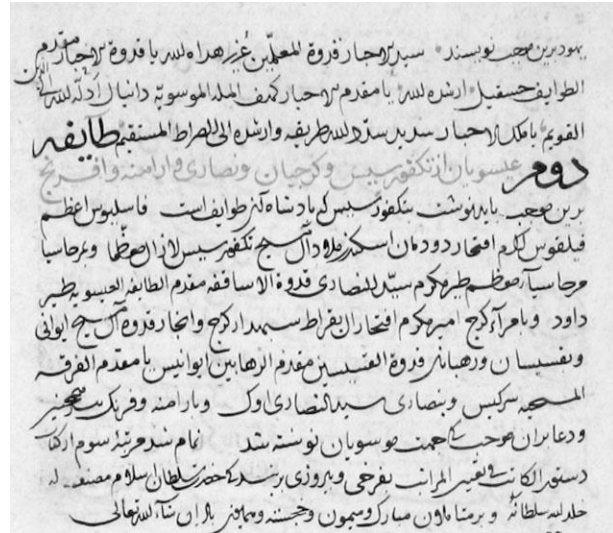 یهود برین موجب نویسند سید الاحبار قدوة المعلمین عزیر هداه الله یا قدوة الاحبار مقدم
الطوایف حسقیل ارشده الله یا مقدم الاحبار کهف المله الموسویه دانیال ادله الله الی الدین
القویم یا ملک الاحبار سدید سدد الله طریقه وارشده الی الصراط المستقیم طایفه
دوم عیسویان از تکفور سیس و کرجیان و نصاری و ارامنه و افرنج
برین موجب باید نوشت بتکفور سیس که پادشاه آن طوایف است فاسلیوس اعظم
فیلقوس اکرم افتخار دودمان اسکندر ملاذ آل مسیح تکفور سیس لازال معظما
معظم طیره کرم سید النصاری قدوة الاساقفه مقدم الطایفه العیسویه طیر
داود و بامرآء کرج امیر مکرم افتخار آل بقراط سپهدار کرج و انجاز قدوة آل مسیح ایوانی
و بقسیسان و رهبانان قدوة القسیسین مقدم الرهابین ایوانیس یا مقدم الفرقه
المسیحیه سرکیس و بنصاری سید النصاری اوک و بارامنه و فرنک بر
و دعا بران موجب که جهت موسویان نوشته شد تمام شد مرتبۀ سوم از کتاب
دستور الکاتب فی تعیین المراتب بفرخی و پیروزی برسد که حضرت سلطان سلام
خلد الله سلطانه و بر همایون مبارک و میمون و خجسته و همایون باد ان شآء الله تعالی